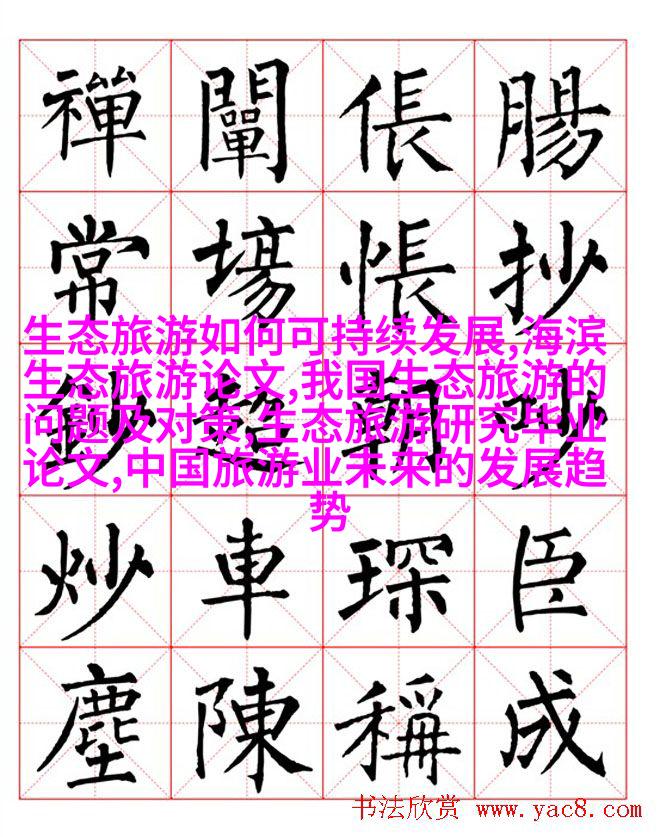 禪 闡 倀 腸
常 場 悵 抄
鈔 超 朝 吵
生态旅游如何可持续发展,海滨
生态旅游论文,我国生态旅游的
问题及对策,生态旅游研究毕业
论文,中国旅游业未来的发展趋
势
炒 車 琛 臣
塵 陳 稱 成
书法欣赏 www.yac8.com